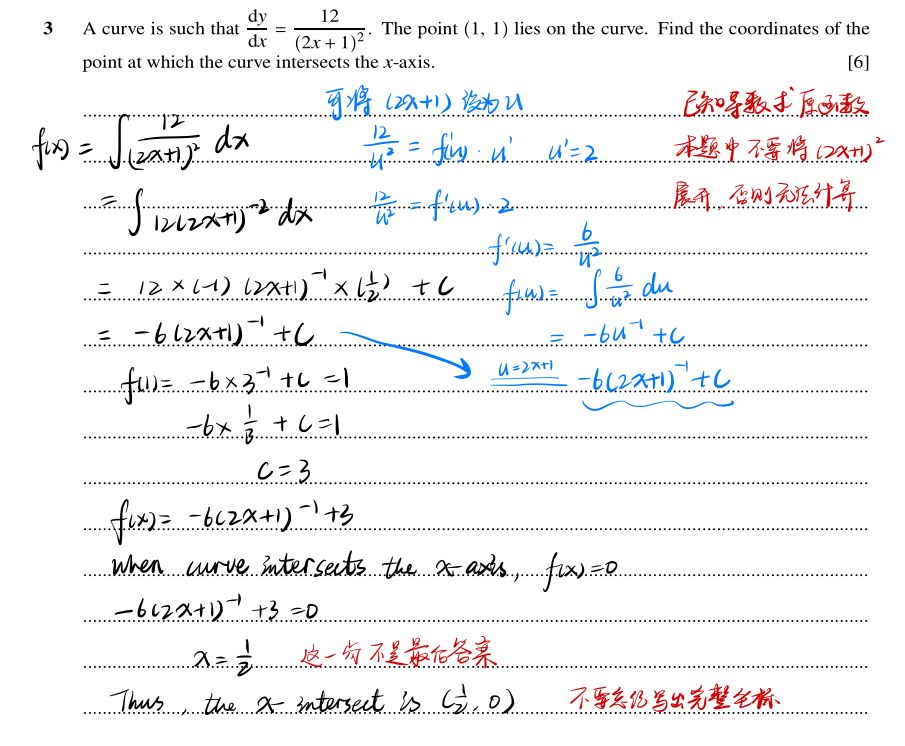 3 A curve is such that dy/dx = 12/(2x + 1)². The point (1, 1) lies on the curve. Find the coordinates of the
point at which the curve intersects the x-axis. [6]
可将 (2x+1) 设为 u
已知导数求原函数
f(x) = ∫ 12/(2x+1)² dx
12/u² = f'(u) · u' u' = 2
本题中不要将 (2x+1)²
= ∫ 12(2x+1)⁻² dx
12/u² = f'(u) · 2
展开, 否则无法计算
f'(u) = 6/u²
= 12 × (-1) (2x+1)⁻¹ × (1/2) + C
f(u) = ∫ 6/u² du
= -6(2x+1)⁻¹ + C
= -6u⁻¹ + C
f(1) = -6 × 3⁻¹ + C = 1
u = 2x+1 -6(2x+1)⁻¹ + C
-6 × 1/3 + C = 1
C = 3
f(x) = -6(2x+1)⁻¹ + 3
When curve intersects the x-axis, f(x) = 0
-6(2x+1)⁻¹ + 3 = 0
x = 1/2 这一句不是最后答案
Thus, the x-intersect is (1/2, 0) 不要忘记写出完整坐标